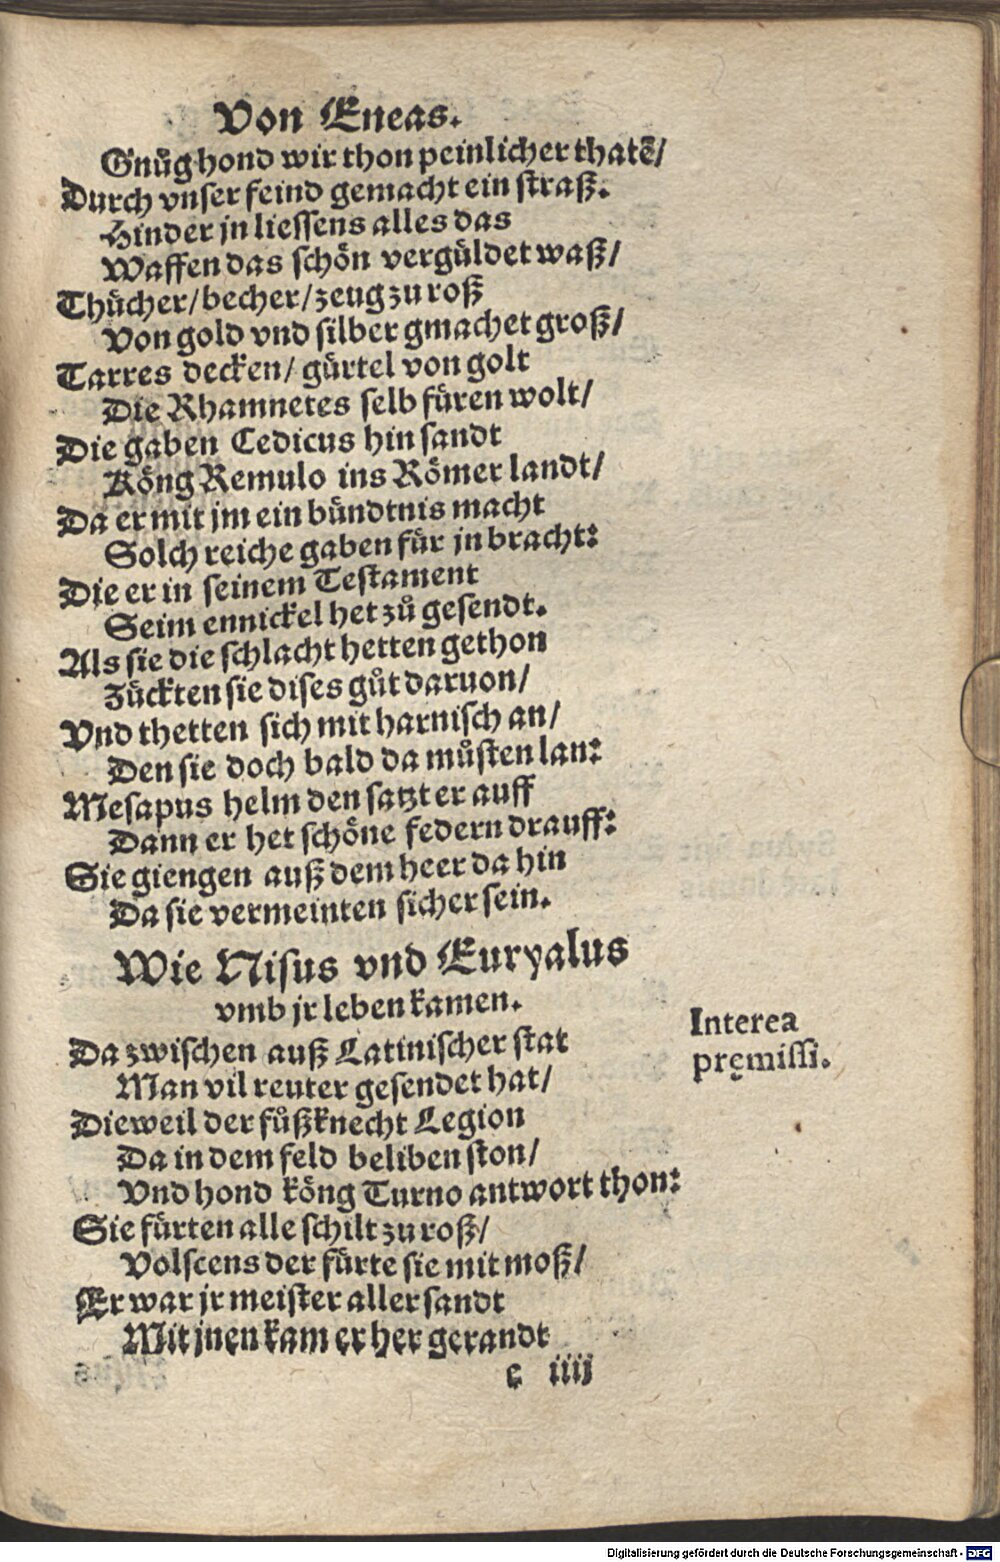 Von Eneas.
Gnůg hond wir thon peinlicher thatē/
Durch vnser feind gemacht ein straß.
Hinder jn liessens alles das
Waffen das schön vergüldet waß/
Thücher/ becher/ zeug zu roß
Von gold vnd silber gmachet groß/
Tarres decken/ gürtel von golt
Die Rhamnetes selb füren wolt/
Die gaben Cedicus hin sandt
Köng Remulo ins Römer landt/
Da er mit jm ein bündtnis macht
Solch reiche gaben für jn bracht:
Die er in seinem Testament
Seim ennickel het zů gesendt.
Als sie die schlacht hetten gethon
Zückten sie dises gůt daruon/
Vnd thetten sich mit harnisch an/
Den sie doch bald da můsten lan:
Mesapus helm den satzt er auff
Dann er het schöne federn drauff:
Sie giengen auß dem heer da hin
Da sie vermeinten sicher sein.
Wie Nisus vnd Euryalus
vmb jr leben kamen.
Interea
pręmissi.
Da zwischen auß Latinischer stat
Man vil reuter gesendet hat/
Dieweil der fůßknecht Legion
Da in dem feld beliben ston/
Vnd hond köng Turno antwort thon:
Sie fürten alle schilt zu roß/
Volscens der fürte sie mit moß/
Er war jr meister aller sandt
Mit jnen kam er her gerandt
e iiij
Digitalisierung gefördert durch die Deutsche Forschungsgemeinschaft - DFG